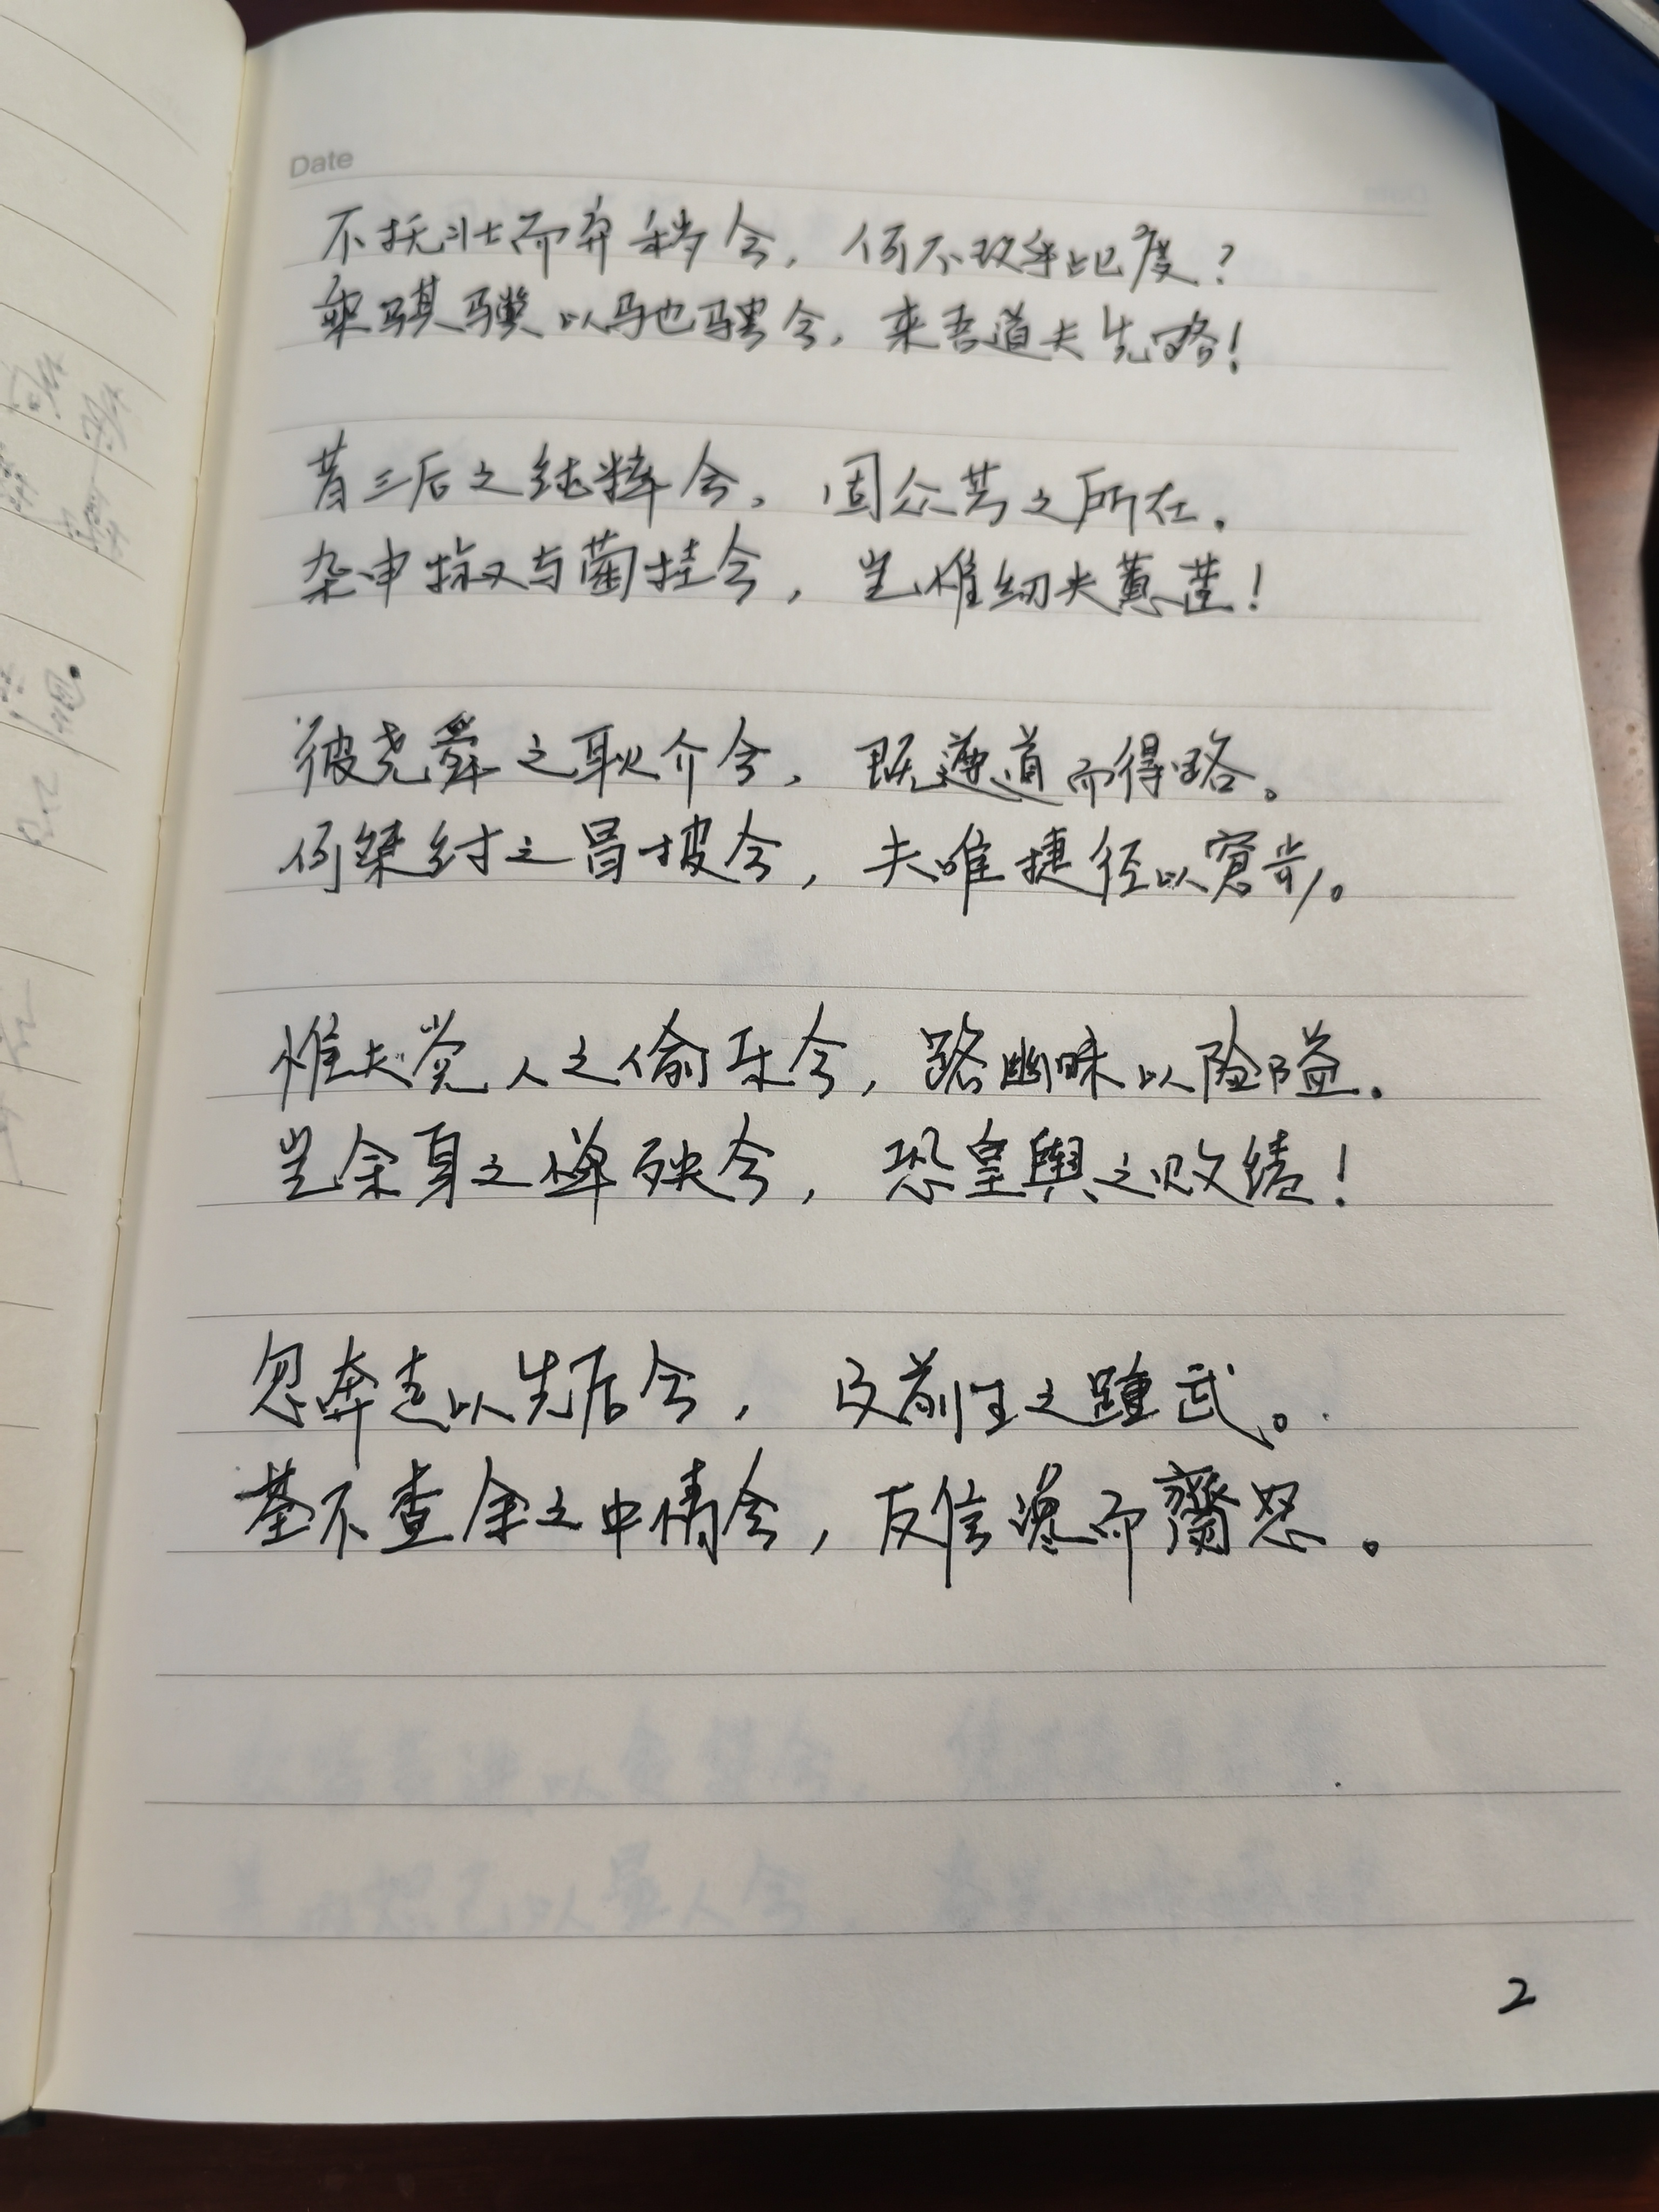 Date
不抚壮而弃秽兮，何不改乎此度？
乘骐骥以驰骋兮，来吾道夫先路！
昔三后之纯粹兮，固众芳之所在。
杂申椒与菌桂兮，岂惟纫夫蕙茝！
彼尧舜之耿介兮，既遵道而得路。
何桀纣之昌披兮，夫唯捷径以窘步。
惟夫党人之偷乐兮，路幽昧以险隘。
岂余身之惮殃兮，恐皇舆之败绩！
忽奔走以先后兮，及前王之踵武。
荃不查余之中情兮，反信谗而齌怒。
2